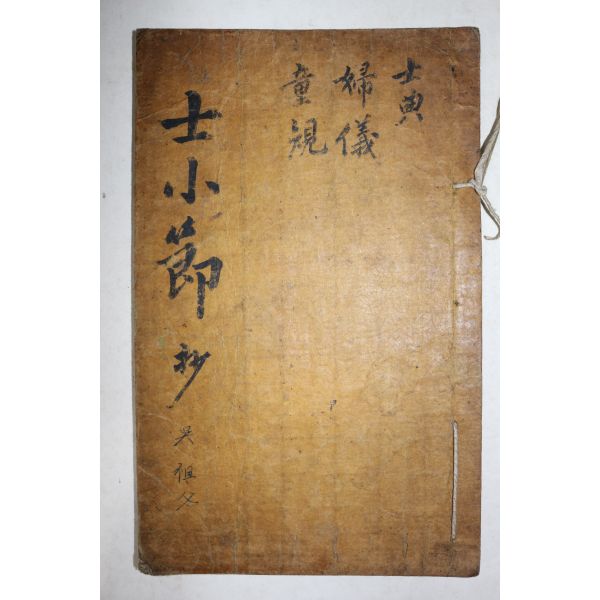 士典
婦儀
童規
士小節 抄
吳 祖父